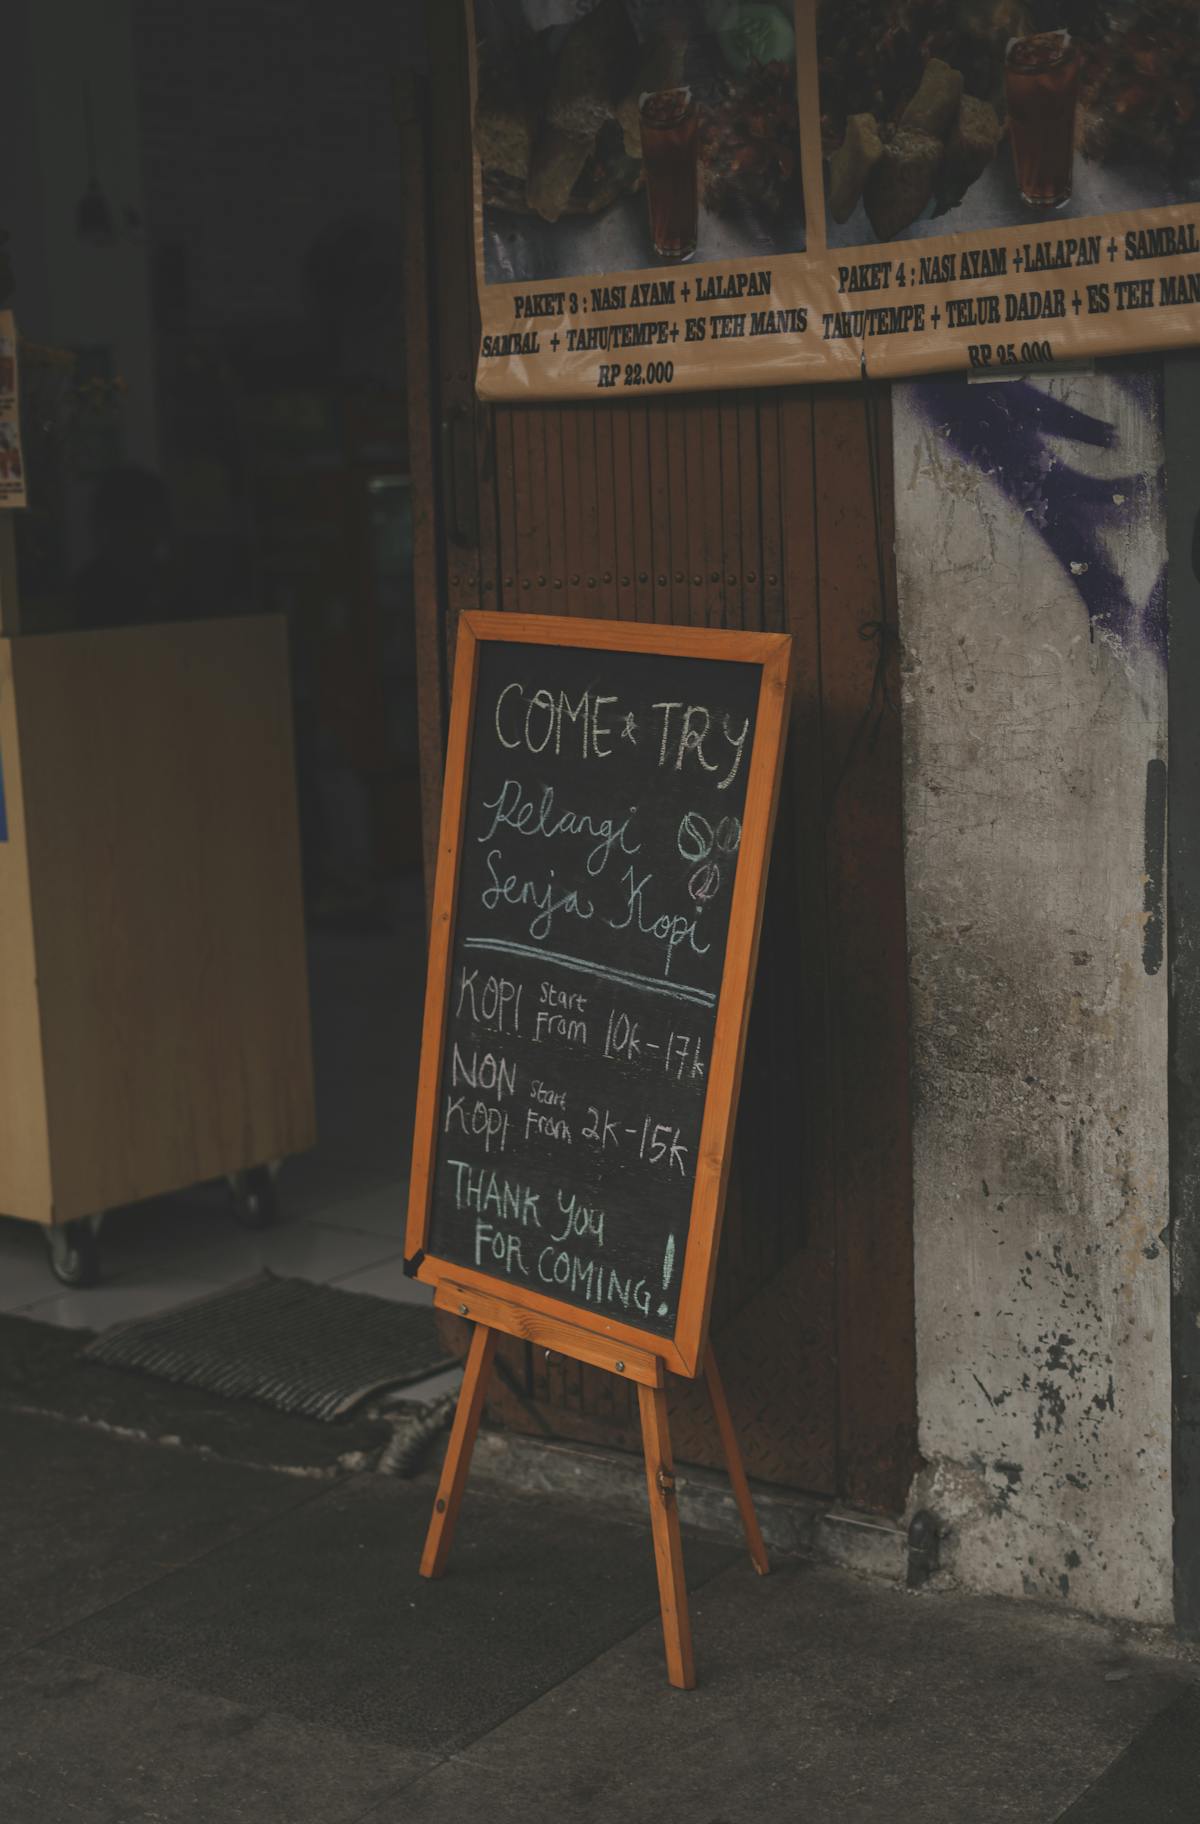 PAKET 3 : NASI AYAM + LALAPAN
SAMBAL + TAHU/TEMPE+ ES TEH MANIS
RP 22.000
PAKET 4 : NASI AYAM +LALAPAN + SAMBAL
TAHU/TEMPE + TELUR DADAR + ES TEH MAN
RP 25.000
COME & TRY
Pelangi
Senja Kopi
KOPI Start From 10k-17k
NON KOPI Start From 2k-15k
THANK YOU
FOR COMING!